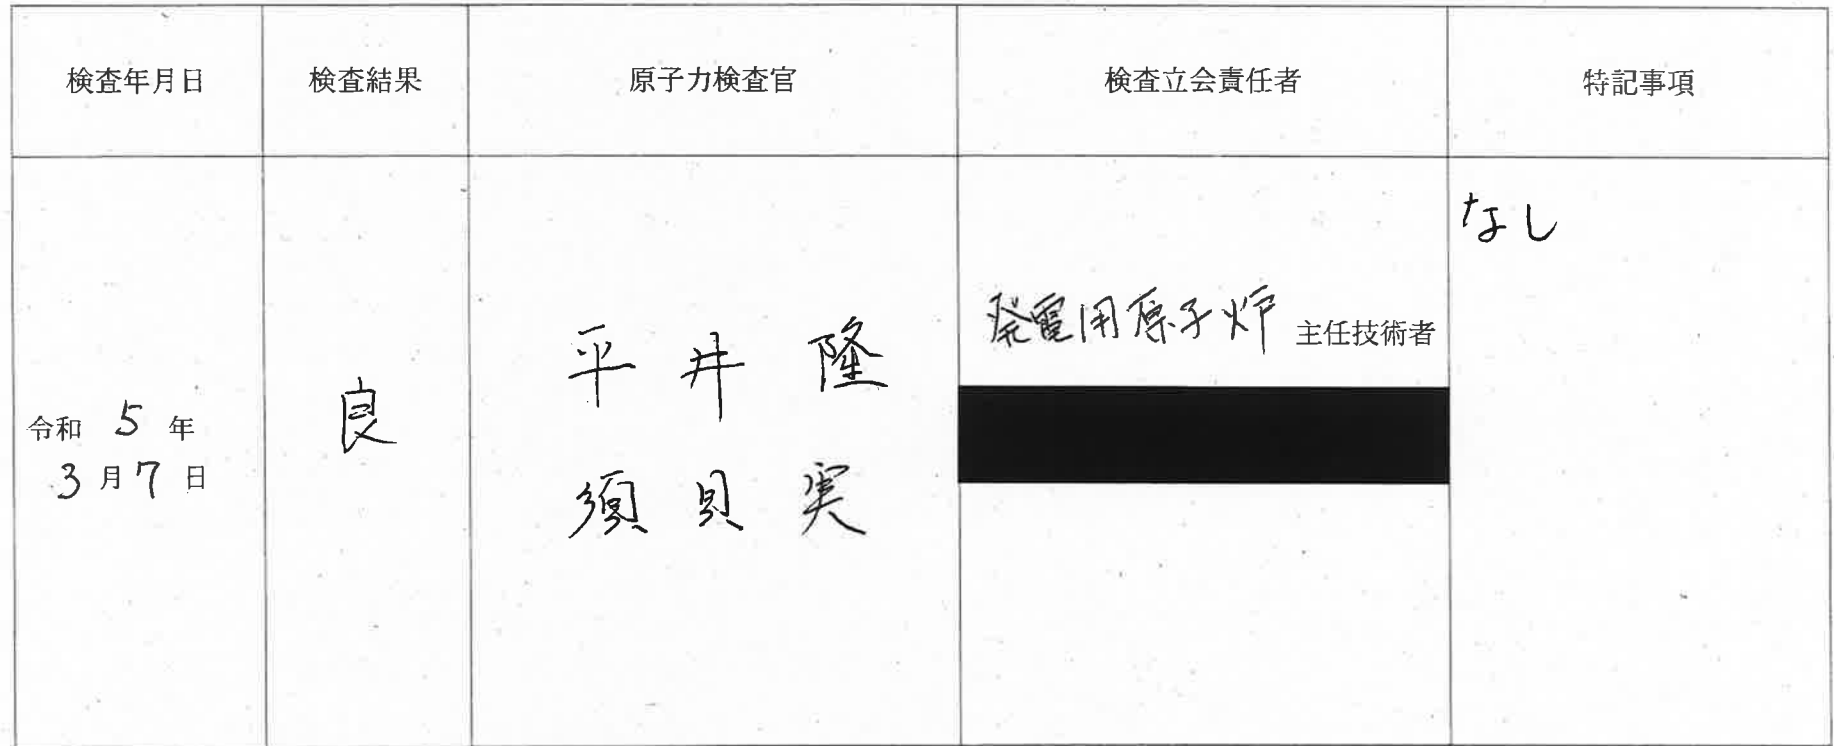 検査年月日 検査結果 原子力検査官 検査立会責任者 特記事項
令和 5 年
3 月 7 日
良
平井 隆
須貝 実
発電用原子炉 主任技術者
なし